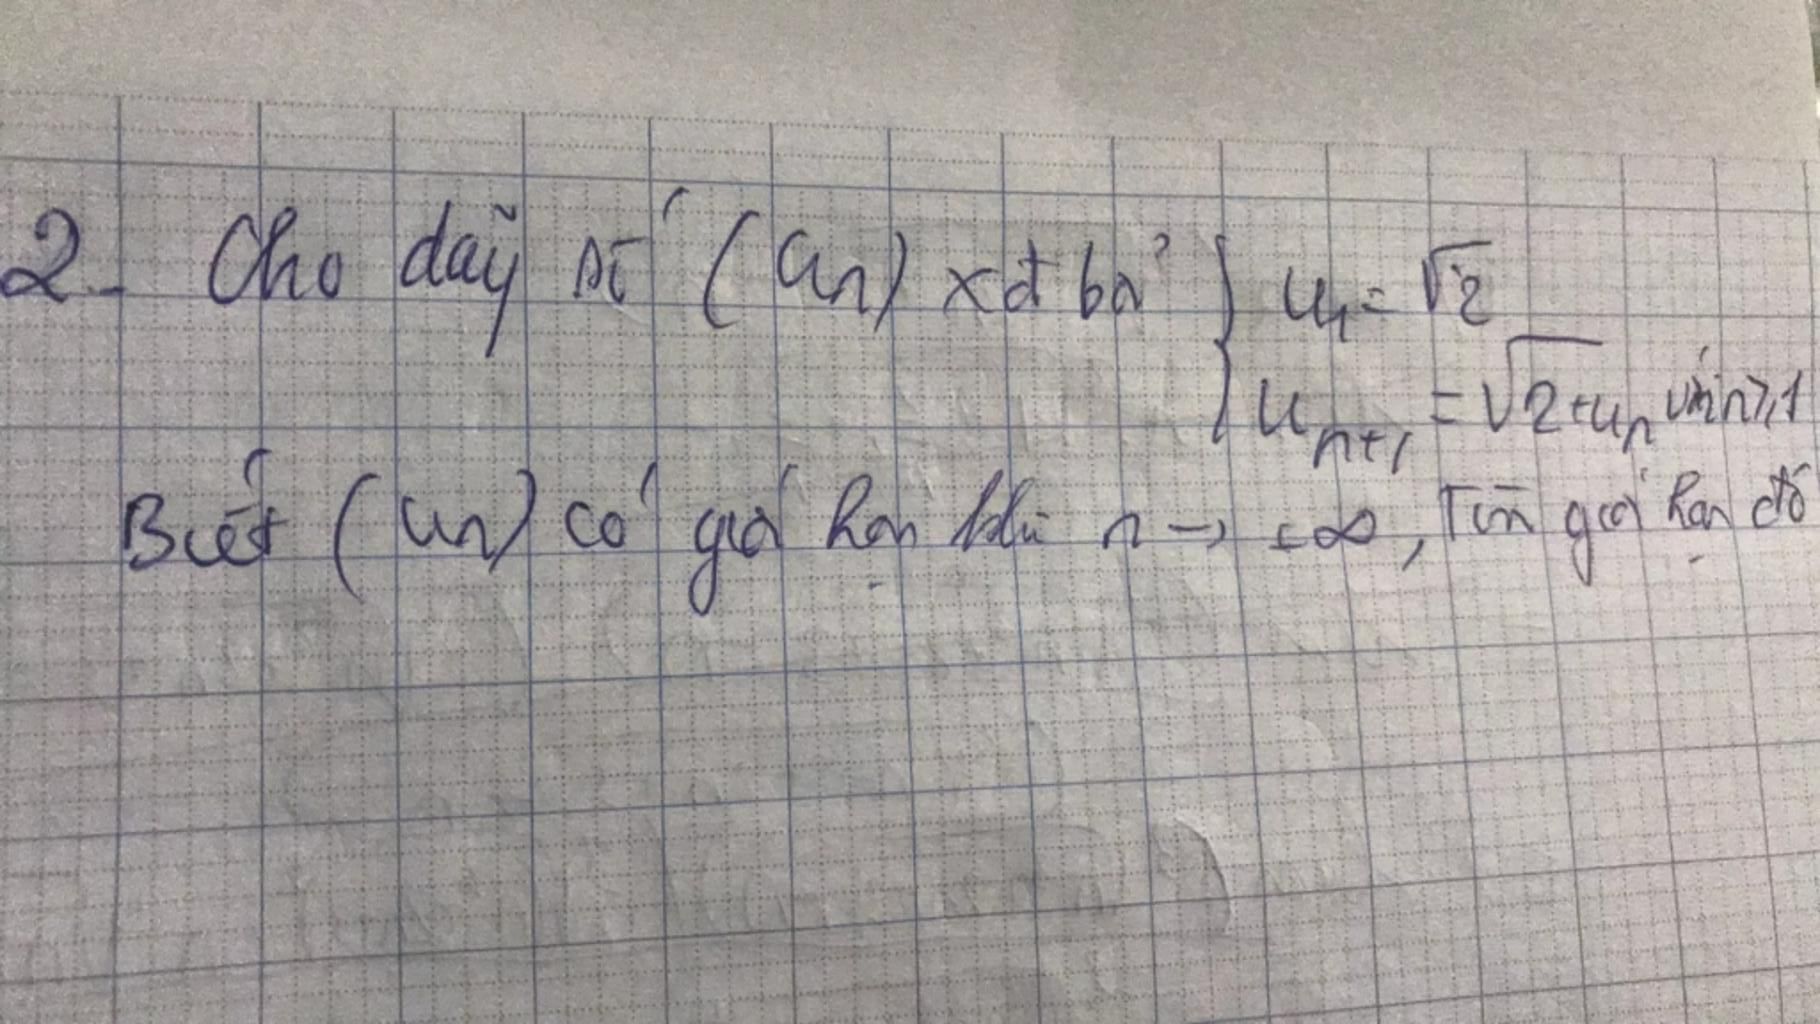 2. Cho dãy số (un) xđ bở } u1 = √2
} un+1 = √2+un với n≥1
Biết (un) có giới hạn khi n → +∞, Tìm giới hạn đó